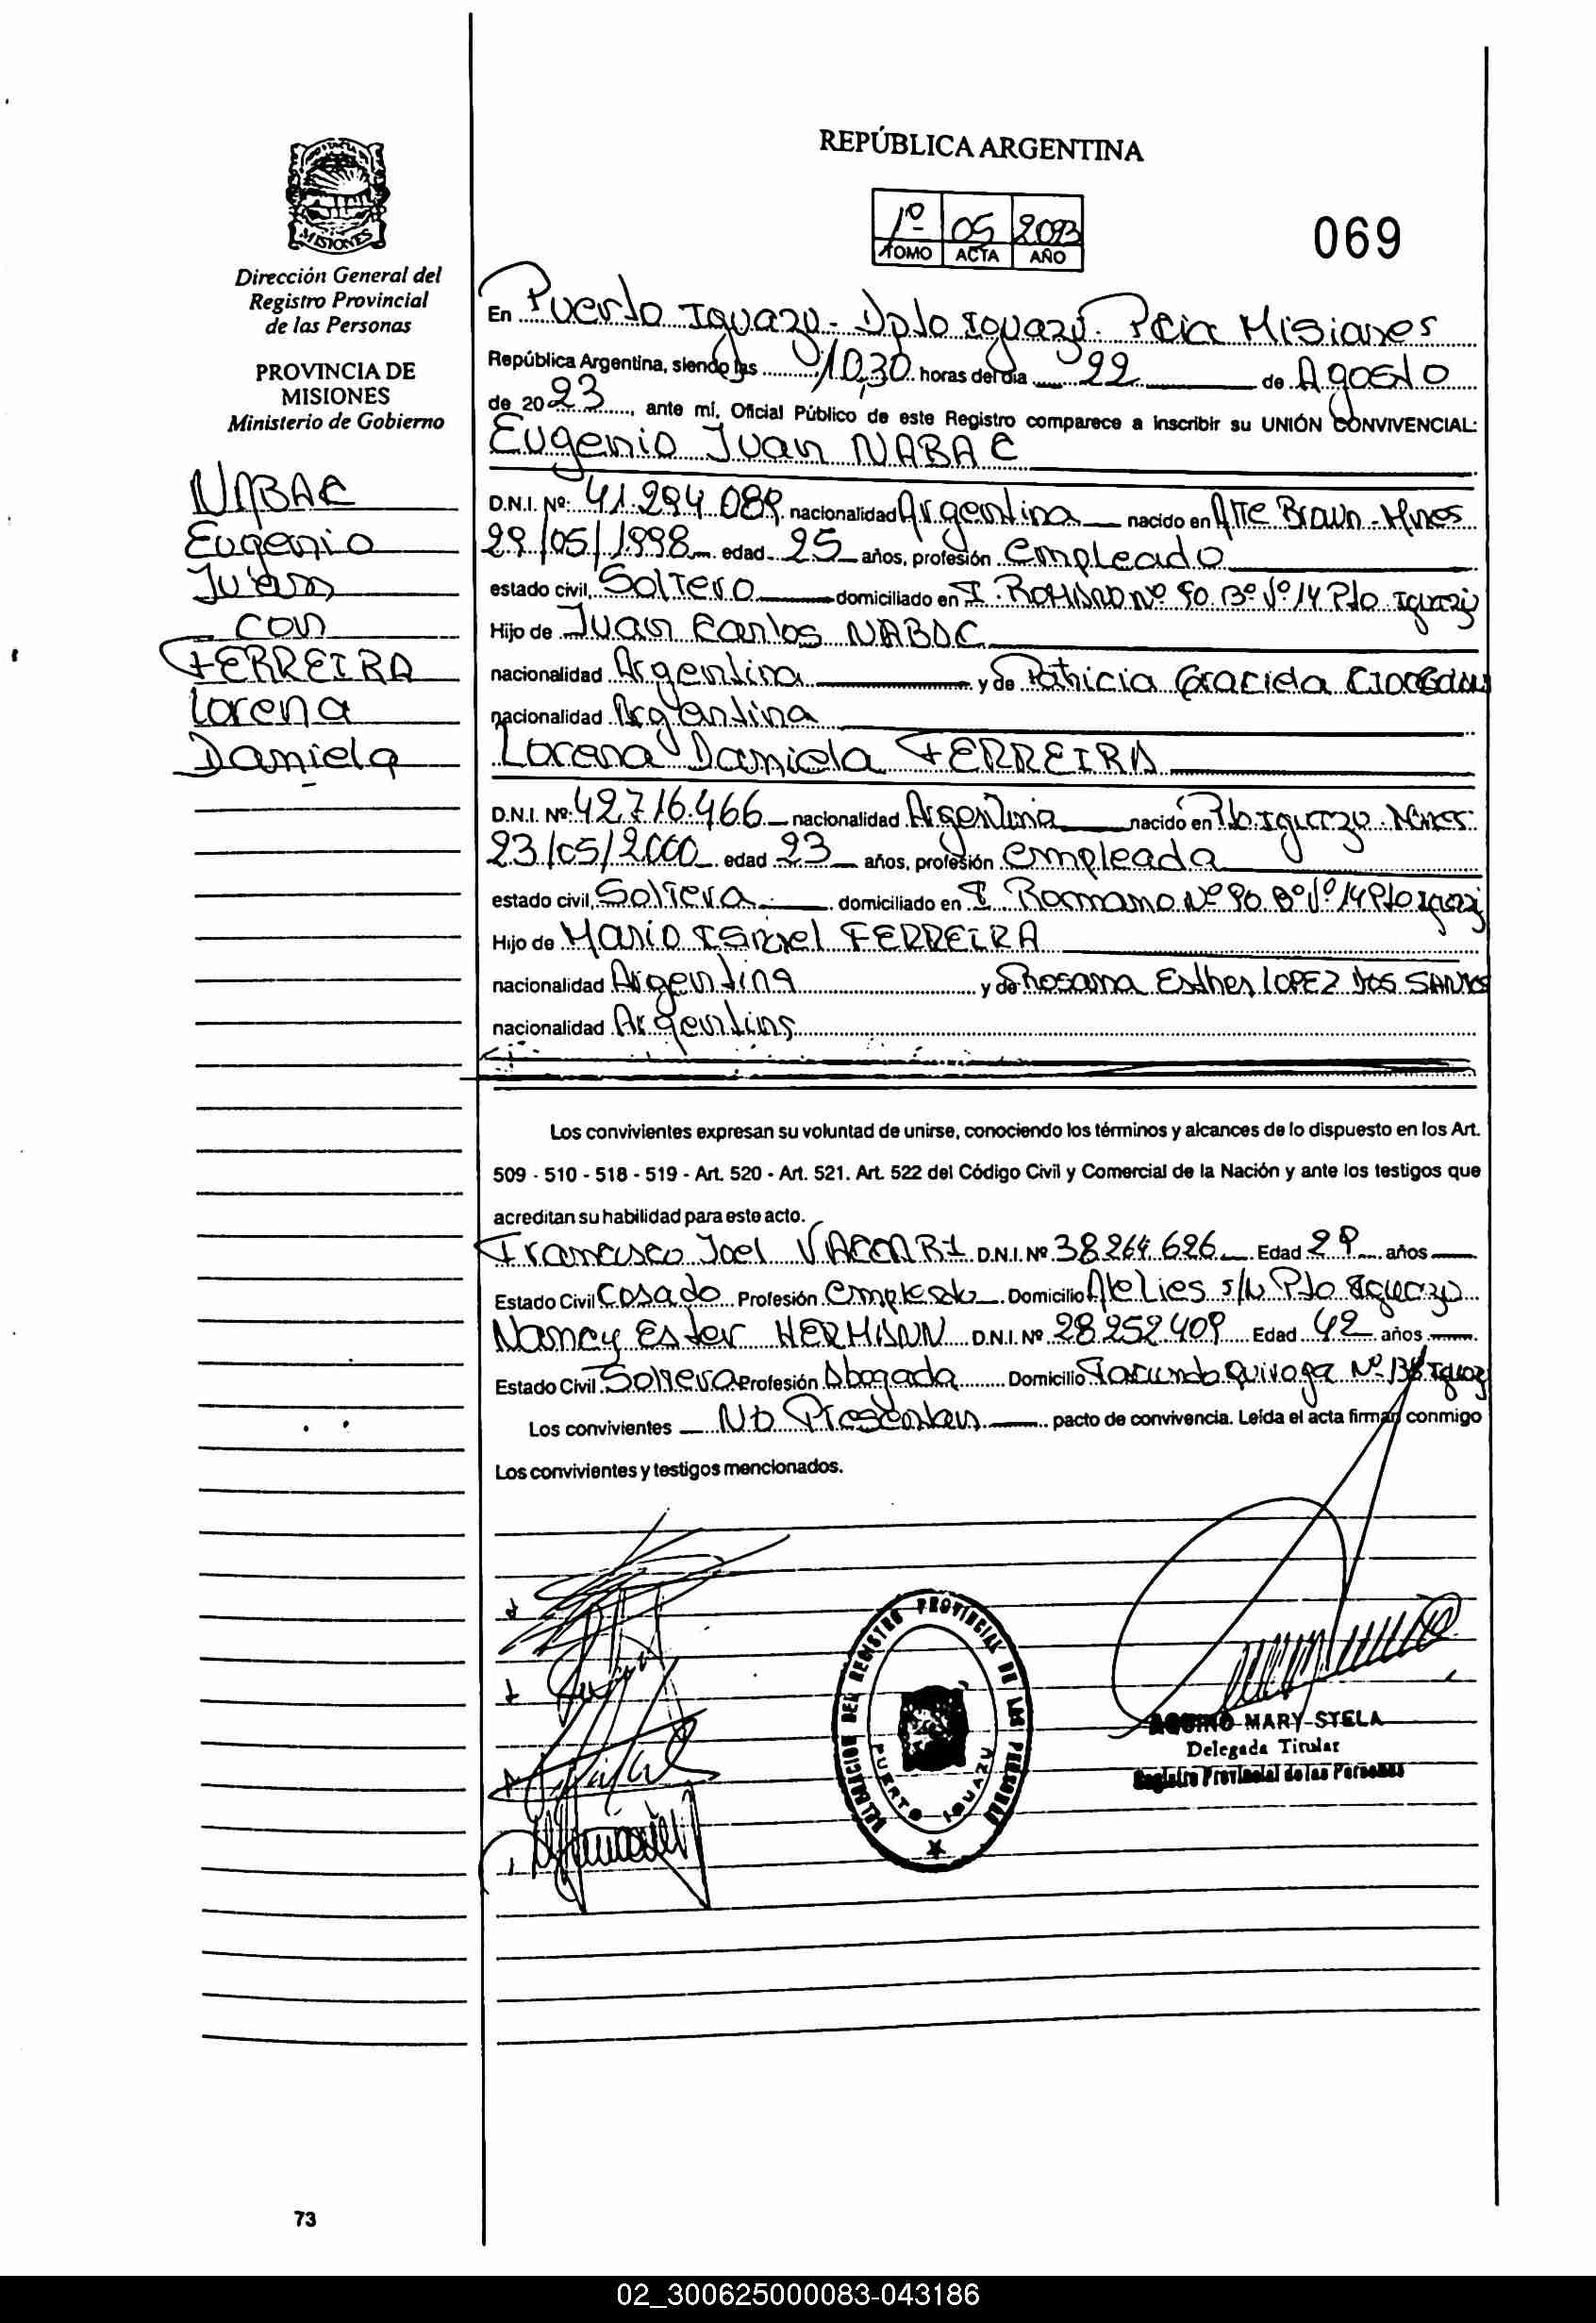 REPÚBLICA ARGENTINA
1º 05 2023
TOMO ACTA AÑO
069
MISIONES
Dirección General del
Registro Provincial
de las Personas
PROVINCIA DE
MISIONES
Ministerio de Gobierno
NABAC
Eugenio
Juan
con
FERREIRA
Lorena
Daniela
En Puerto Iguazú - Dpto Iguazú. Pcia Misiones
República Argentina, siendo las 10,30 horas del día 22 de Agosto
de 2023, ante mí, Oficial Público de este Registro comparece a inscribir su UNIÓN CONVIVENCIAL:
Eugenio Juan NABAC
D.N.I. Nº: 41.294.089 nacionalidad Argentina nacido en Alte Brown - Mnes
29/05/1998 edad 25 años, profesión empleado
estado civil, Soltero domiciliado en I. Romano Nº 90 Bº Vº 14 Pto Iguazú
Hijo de Juan Carlos NABAC
nacionalidad Argentina y de Patricia Graciela
nacionalidad Argentina
Lorena Daniela FERREIRA
D.N.I. Nº: 42.716.466 nacionalidad Argentina nacido en Pto. Iguazú Mnes
23/05/2000 edad 23 años, profesión empleada
estado civil, Soltera domiciliado en I. Romano Nº 90 Bº Vº 14 Pto Iguazú
Hijo de Mario Ismael FERREIRA
nacionalidad Argentina y de Rosana Esther LOPEZ DOS SANTOS
nacionalidad Argentina
Los convivientes expresan su voluntad de unirse, conociendo los términos y alcances de lo dispuesto en los Art.
509 - 510 - 518 - 519 - Art. 520 - Art. 521. Art. 522 del Código Civil y Comercial de la Nación y ante los testigos que
acreditan su habilidad para este acto.
Francisco Joel D.N.I. Nº 38.264.626 Edad 29 años
Estado Civil Casado Profesión Empleado Domicilio Atelies s/n Pto Iguazú
Nancy Ester HERMANN D.N.I. Nº 28.252.409 Edad 42 años
Estado Civil Soltera Profesión Abogada Domicilio Facundo Quiroga Nº 138 Iguazú
Los convivientes No Presentan pacto de convivencia. Leída el acta firman conmigo
Los convivientes y testigos mencionados.
DELEGACION DEL REGISTRO PROVINCIAL DE LAS PERSONAS
PUERTO IGUAZU
AQUINO MARY STELA
Delegada Titular
Registro Provincial de las Personas
73
02_300625000083-043186